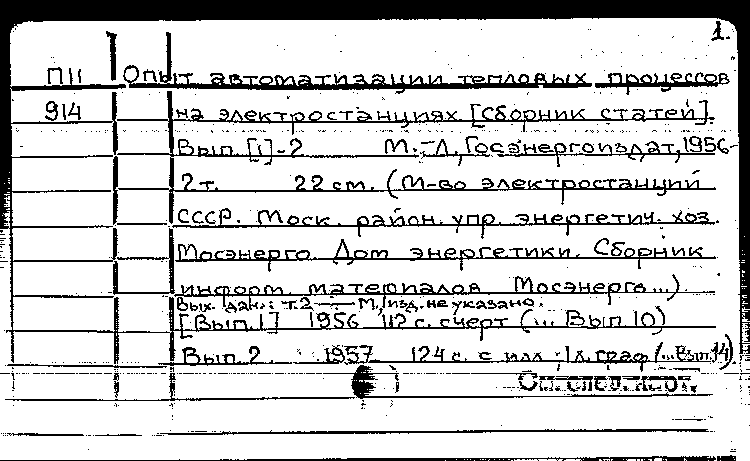 1.
П11 Опыт автоматизации тепловых процессов
914 на электростанциях [Сборник статей].
Вып. [1]-2 М.-Л., Госэнергоиздат, 1956-
2 т. 22 см. (М-во электростанций
СССР. Моск. район. упр. энергетич. хоз.
Мосэнерго. Дом энергетики. Сборник
информ. материалов Мосэнерго...)
Вых. дан.: т.2 — М., изд. не указано.
[Вып. 1] 1956 112 с. с черт (... Вып. 10)
Вып. 2. 1957 124 с. с илл.; 1 л. граф (... Вып. 14)
См. след. карт.